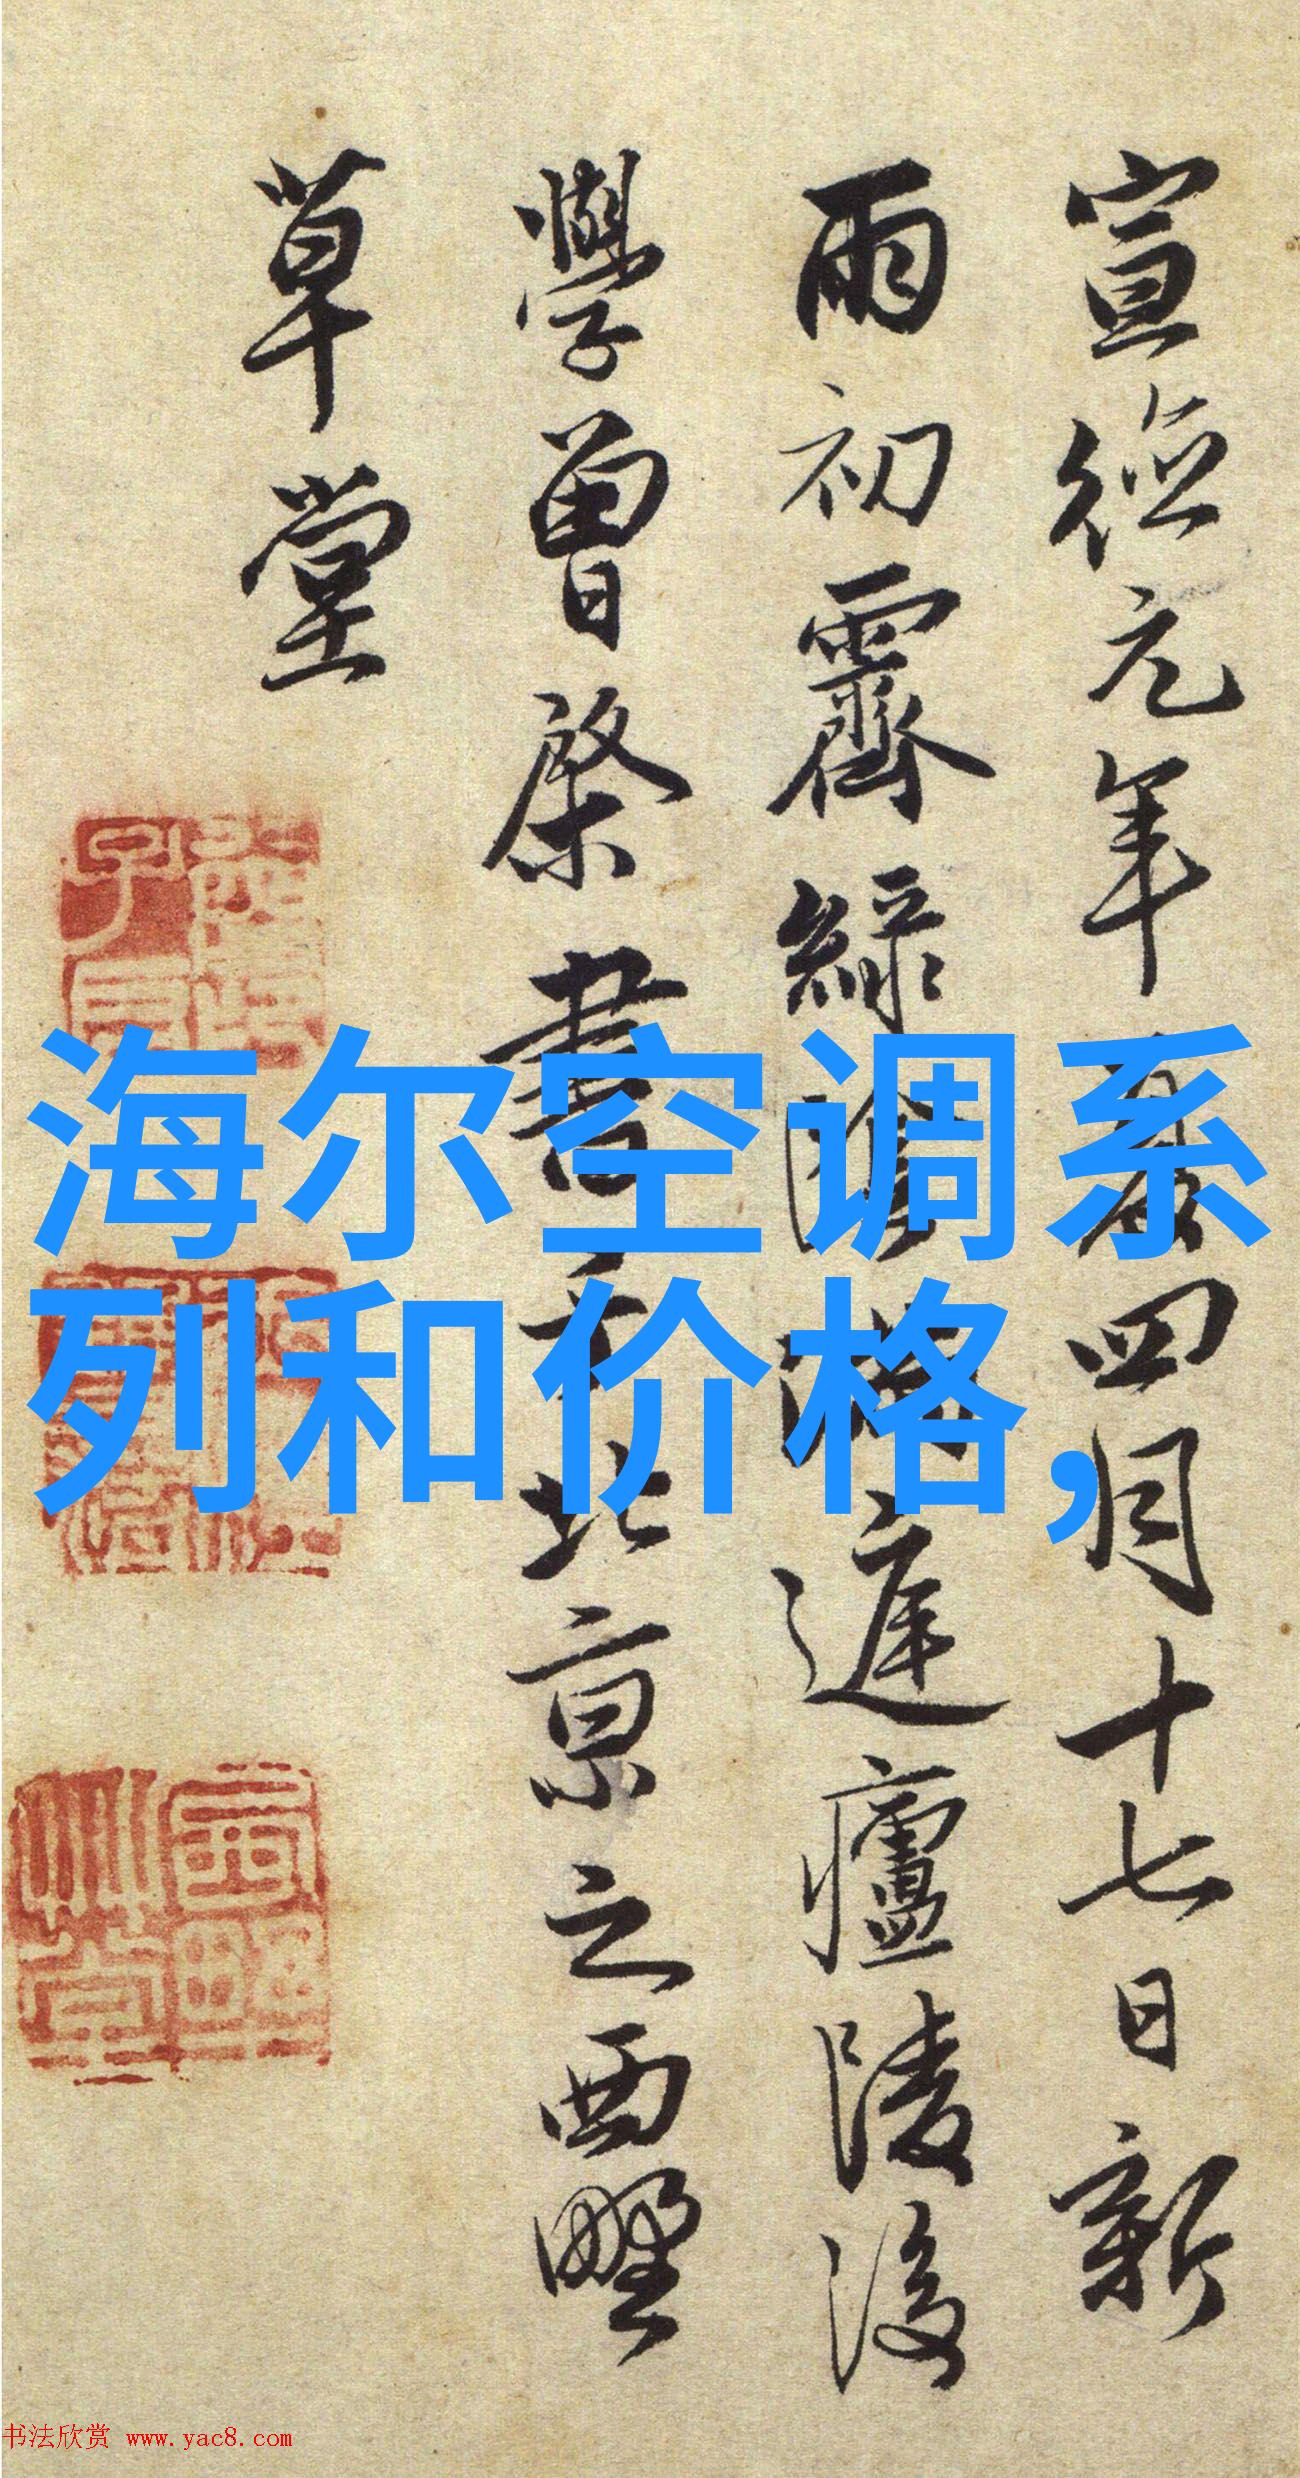 宣德元年夏四月十七日新
雨初霽綠陰滿庭廬陵後
學曾棨書于北京之西墅
草堂
海尔空调系
列和价格,
书法欣赏 www.yac8.com